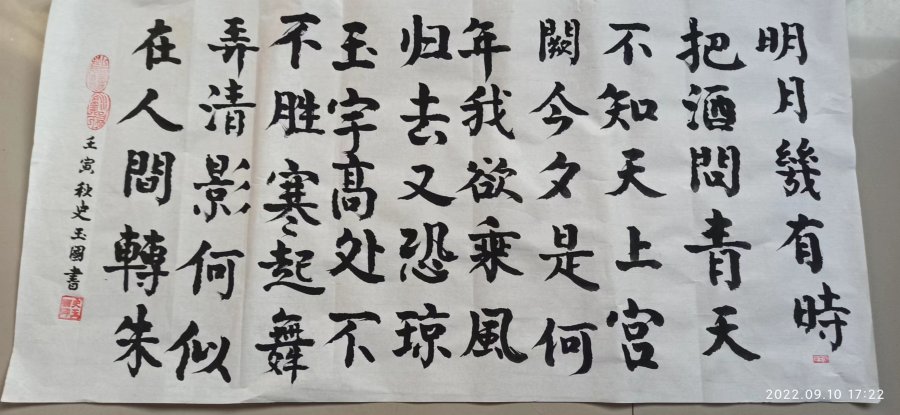 明月幾有時
把酒問青天
不知天上宮
闕今夕是何
年我欲乘風
归去又恐琼
玉宇高处不
不胜寒起舞
弄清影何似
在人間轉朱
壬寅秋史玉國書
2022.09.10 17:22